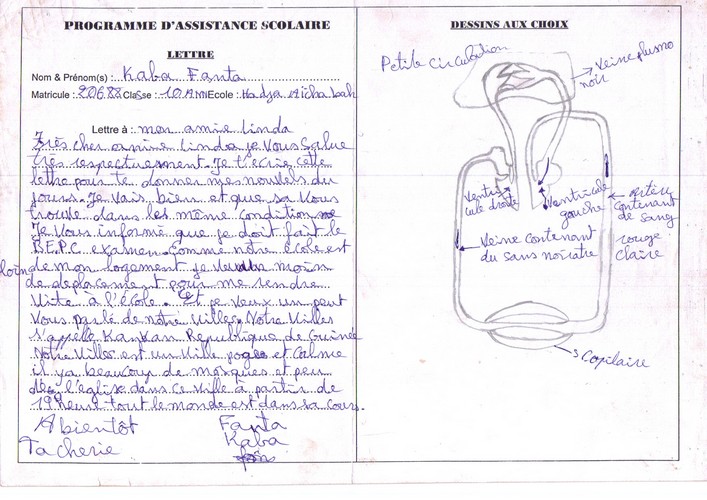 PROGRAMME D'ASSISTANCE SCOLAIRE
LETTRE
Nom & Prénom(s) : Kaba Fanta
Matricule : 20688 Classe : 10 Ecole : Hadja Aicha Bah
Lettre à : mon amie Linda
Très cher amine Linda je vous Salue
très respectuesement. Je t'ecrie cette
lettre pour te donner mes nouvels du
jours. Je vais bien et que sa vous
trouve dans les même condition
Je vous informé que je doit fait le
B.E.P.C examen. Comme notre école est
loin de mon logement je veux un moin
de deplacement pour me rendre
vite à l'école. Et je veux un peut
vous parlé de notre villes. Notre villes
s'appelle Kankan Republique de Guinée
Notre villes est un ville et calme
il ya beaucoup de mosques et peu
de l'eglise dans ce ville à partir de
19 heure tout le monde est dans sa cour.
A bientôt
Ta cherie
Fanta
Kaba
DESSINS AUX CHOIX
Petite circulation
Veine pulmo
noir
Ventri
cule droite
Ventricule
gauche
Artère
contenant
de sang
rouge
claire
Veine contenant
du sans noiratre
Copilaire